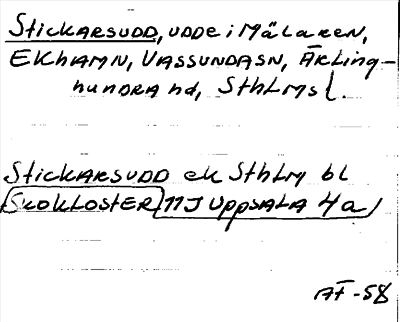 Stickarsudd, udde i Mälaren,
Ekhamn, Vassundasn, Ärling-
hundra hd, Sthlms l.
Stickarsudd ek Sthlm bl
Skokloster 11J Uppsala 4a
AF -58